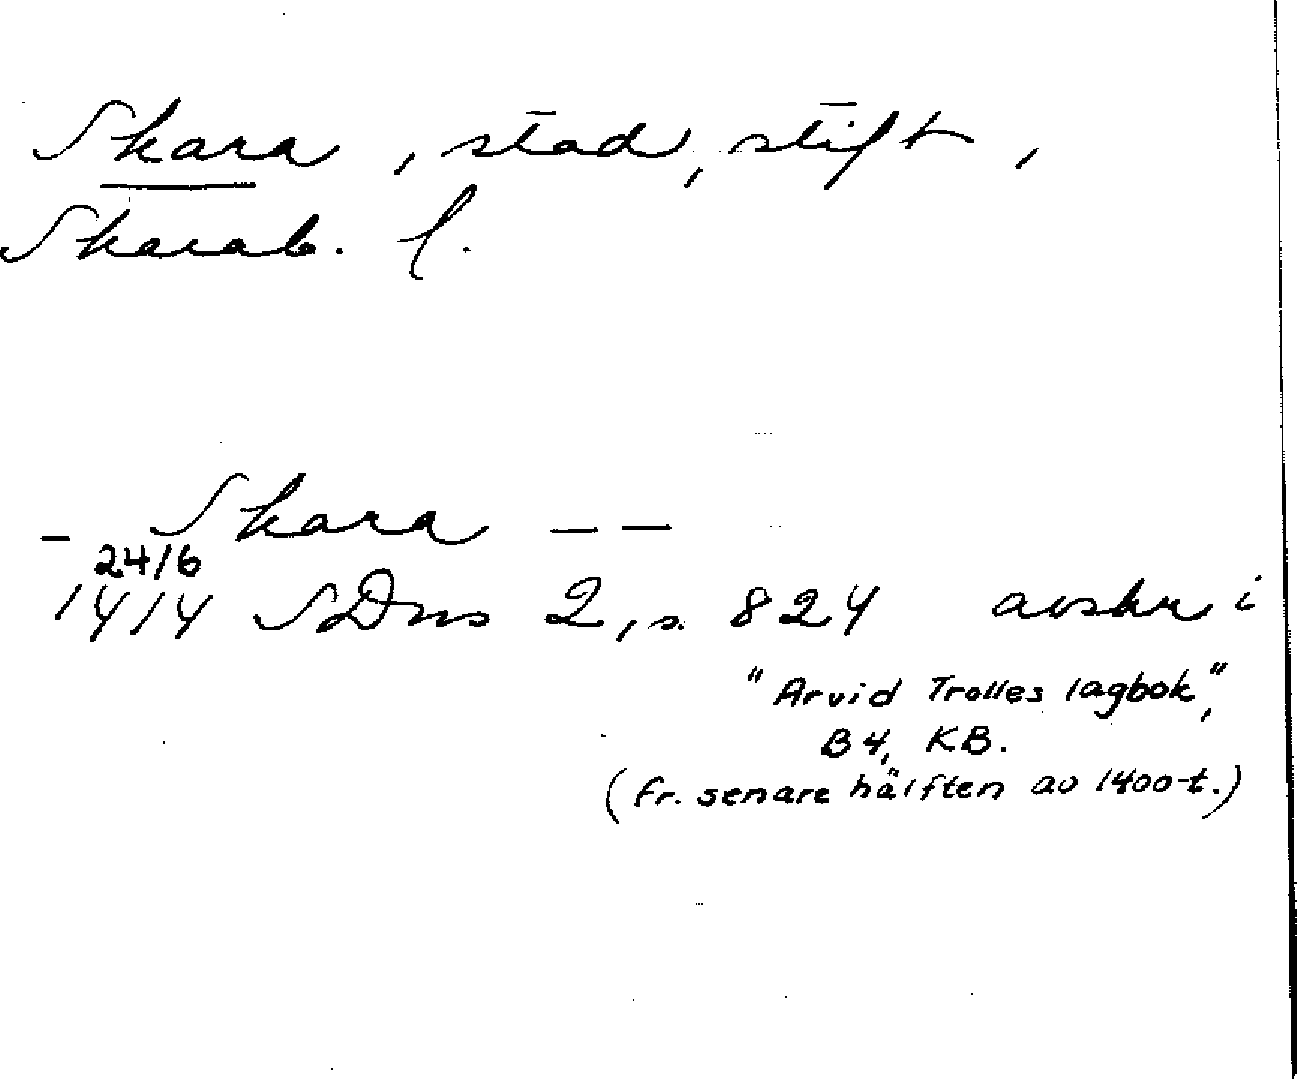 Skara, stad, stift,
Skarab. l.
– Skara – –
24/6
1414 SDns 2, s. 824 avskr i
"Arvid Trolles lagbok",
B 4, KB.
(fr. senare hälften av 1400-t.)